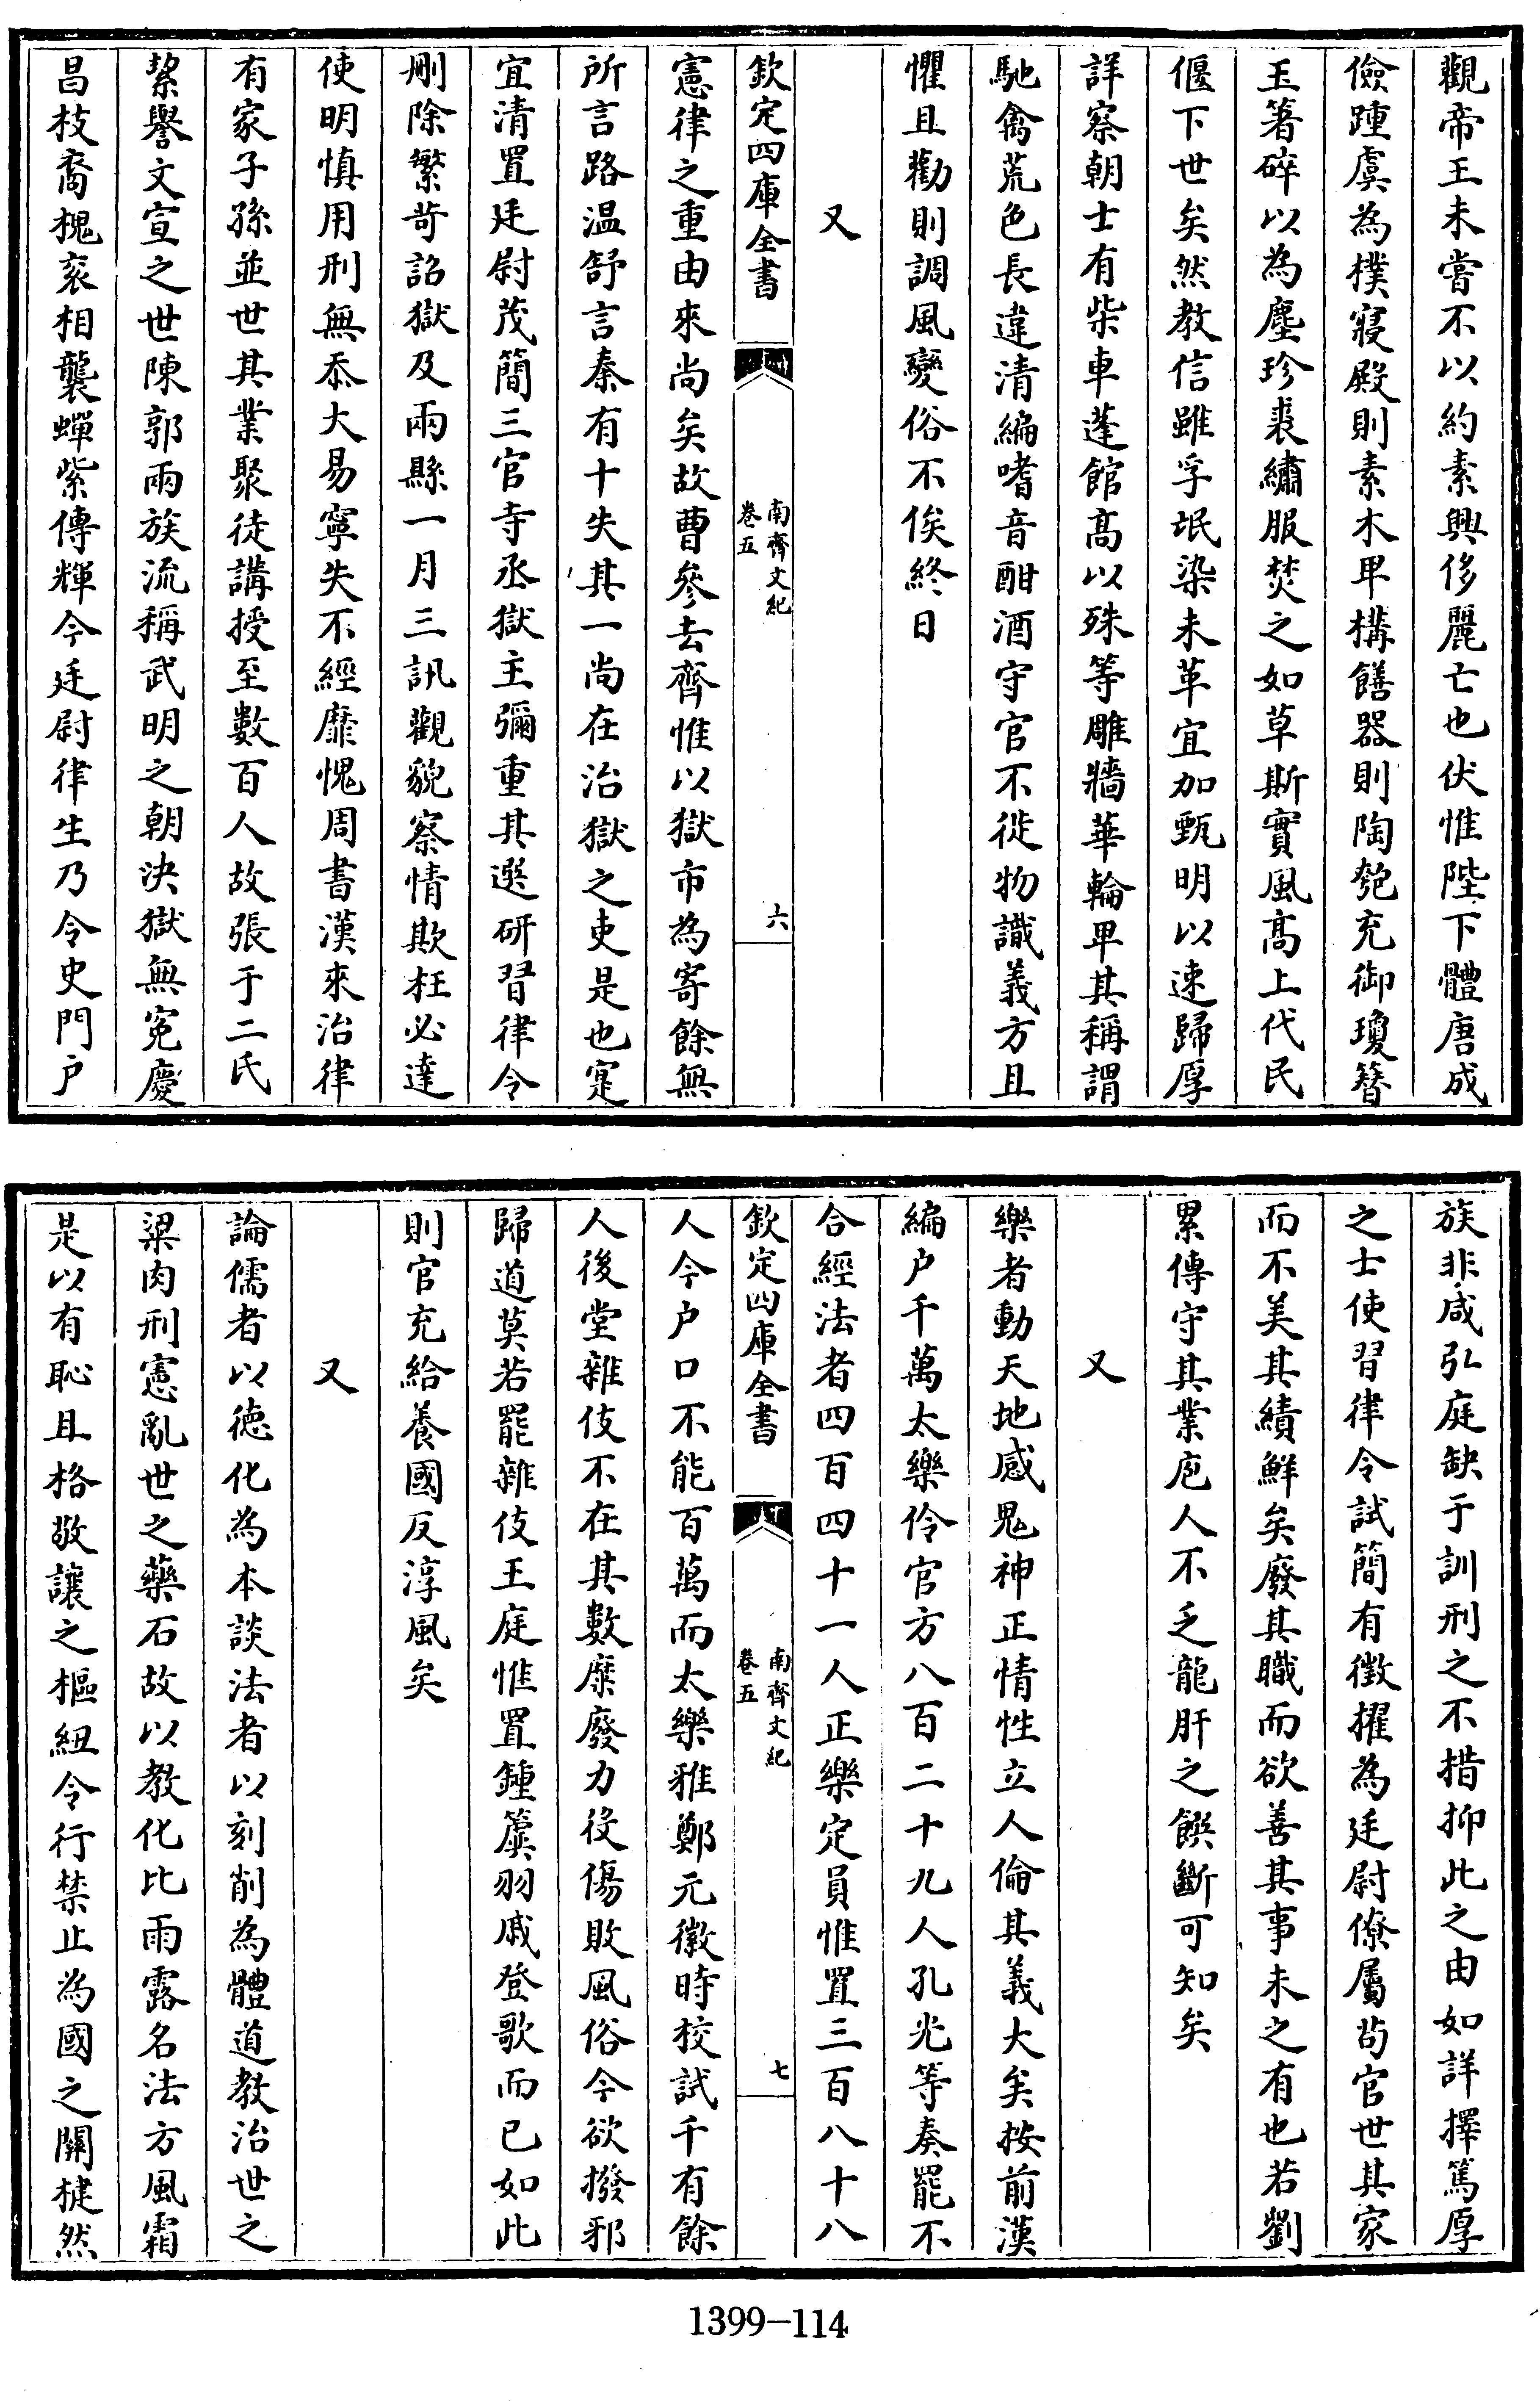 觀帝王未嘗不以約素興侈麗亡也伏惟陛下體唐成
儉踵虞為樸寢殿則素木卑構饍器則陶匏充御瓊簪
玉箸碎以為塵珍裘繡服焚之如草斯實風髙上代民
偃下世矣然教信雖孚氓染未革宜加甄明以速歸厚
詳察朝士有柴車蓬館髙以殊等雕牆華輪卑其稱謂
馳禽荒色長違清編嗜音酣酒守官不徙物識義方且
懼且勸則調風變俗不俟終日
又
欽定四庫全書
南齊文紀
卷五
六
憲律之重由來尚矣故曹參去齊惟以獄市為寄餘無
所言路温舒言秦有十失其一尚在治獄之吏是也寔
宜清置廷尉茂簡三官寺丞獄主彌重其選研習律令
刪除繁苛詔獄及兩縣一月三訊觀貌察情欺枉必達
使明慎用刑無忝大易寧失不經靡愧周書漢來治律
有家子孫並世其業聚徒講授至數百人故張于二氏
絜譽文宣之世陳郭兩族流稱武明之朝決獄無寃慶
昌枝裔槐衮相襲蟬紫傳輝今廷尉律生乃令史門户
族非咸弘庭缺于訓刑之不措抑此之由如詳擇篤厚
之士使習律令試簡有徵擢為廷尉僚屬茍官世其家
而不美其績鮮矣廢其職而欲善其事未之有也若劉
累傳守其業庖人不乏龍肝之饌斷可知矣
又
樂者動天地感鬼神正情性立人倫其義大矣按前漢
編户千萬太樂伶官方八百二十九人孔光等奏罷不
合經法者四百四十一人正樂定員惟置三百八十八
欽定四庫全書
南齊文紀
卷五
七
人今户口不能百萬而太樂雅鄭元徽時校試千有餘
人後堂雜伎不在其數糜廢力役傷敗風俗今欲撥邪
歸道莫若罷雜伎王庭惟置鍾簴羽戚登歌而已如此
則官充給養國反淳風矣
又
論儒者以徳化為本談法者以刻削為體道教治世之
粱肉刑憲亂世之藥石故以教化比雨露名法方風霜
是以有恥且格敬讓之樞紐令行禁止為國之闗楗然
1399-114